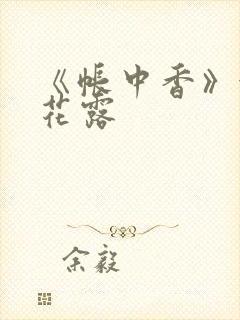 《帐中香》
花露
余毅